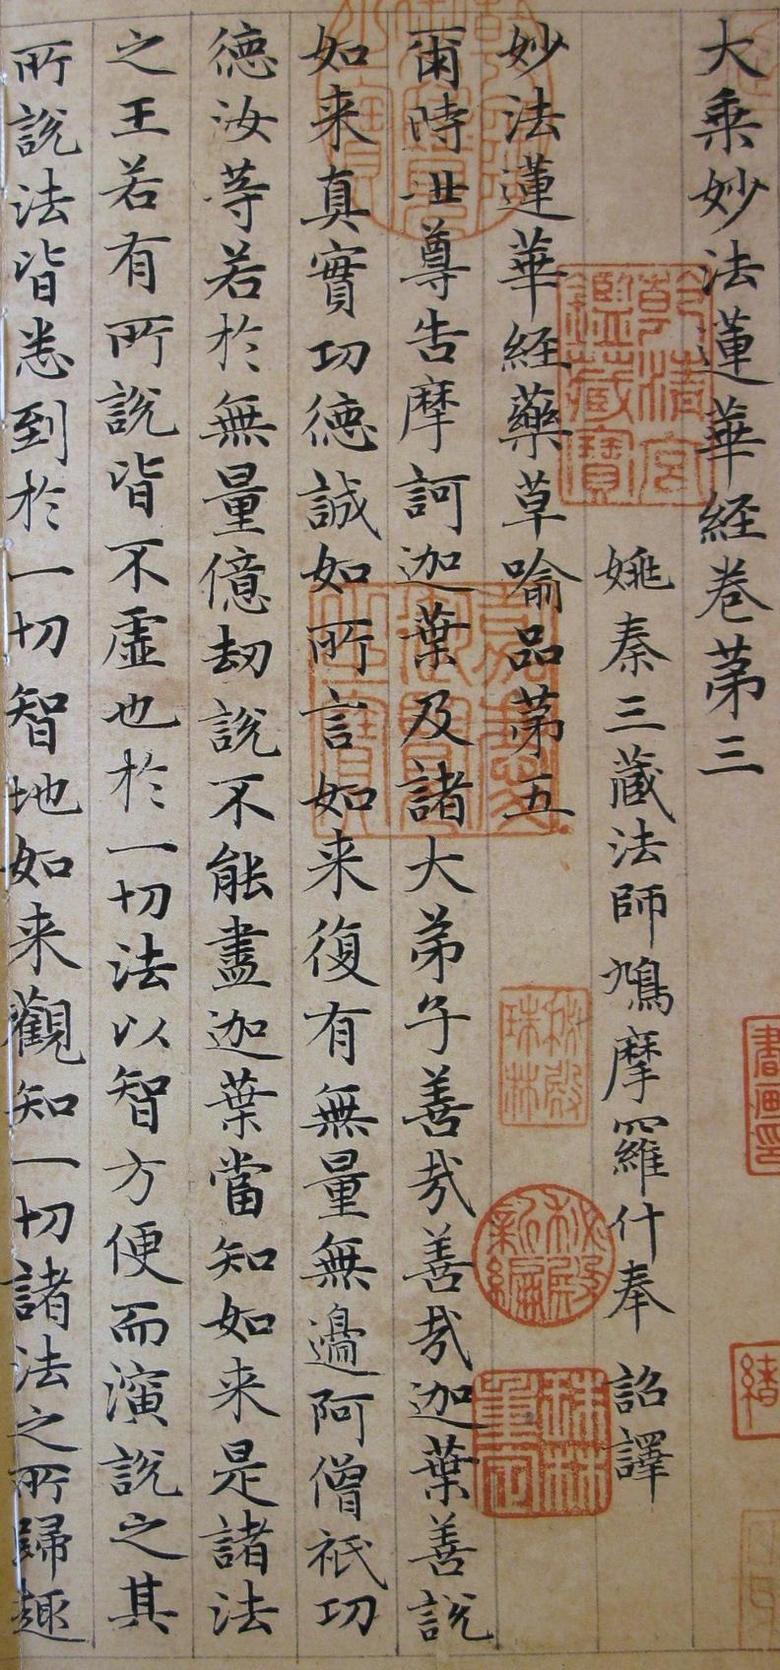 大乘妙法蓮華経卷苐三
姚秦三藏法師鳩摩羅什奉 詔譯
妙法蓮華経藥草喻品苐五
爾時世尊告摩訶迦葉及諸大弟子善哉善哉迦葉善說
如来真實功德誠如所言如来復有無量無邊阿僧祇功
德汝等若於無量億劫說不能盡迦葉當知如来是諸法
之王若有所說皆不虛也於一切法以智方便而演說之其
所說法皆悉到於一切智地如来觀知一切諸法之所歸趣
乾清宮鑑藏寶
秘殿珠林
秘殿新編
珠林重定